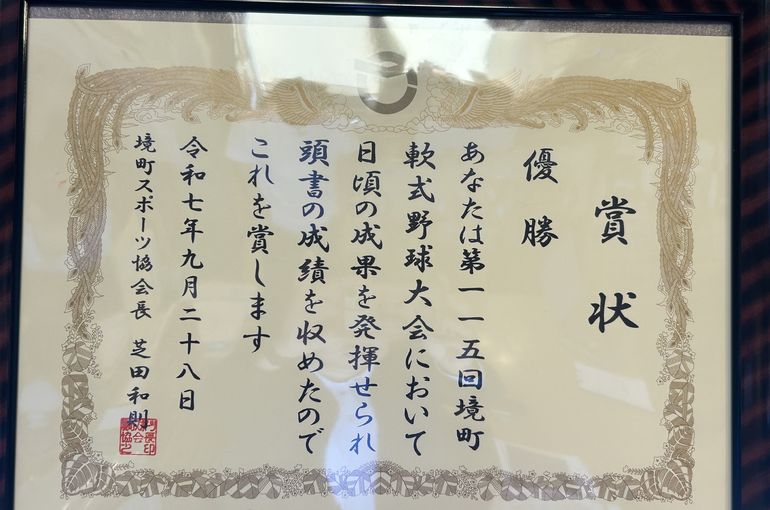 賞状
優勝
あなたは第一一五回境町
軟式野球大会において
日頃の成果を発揮せられ
頭書の成績を収めたので
これを賞します
令和七年九月二十八日
境町スポーツ協会長 芝田和則